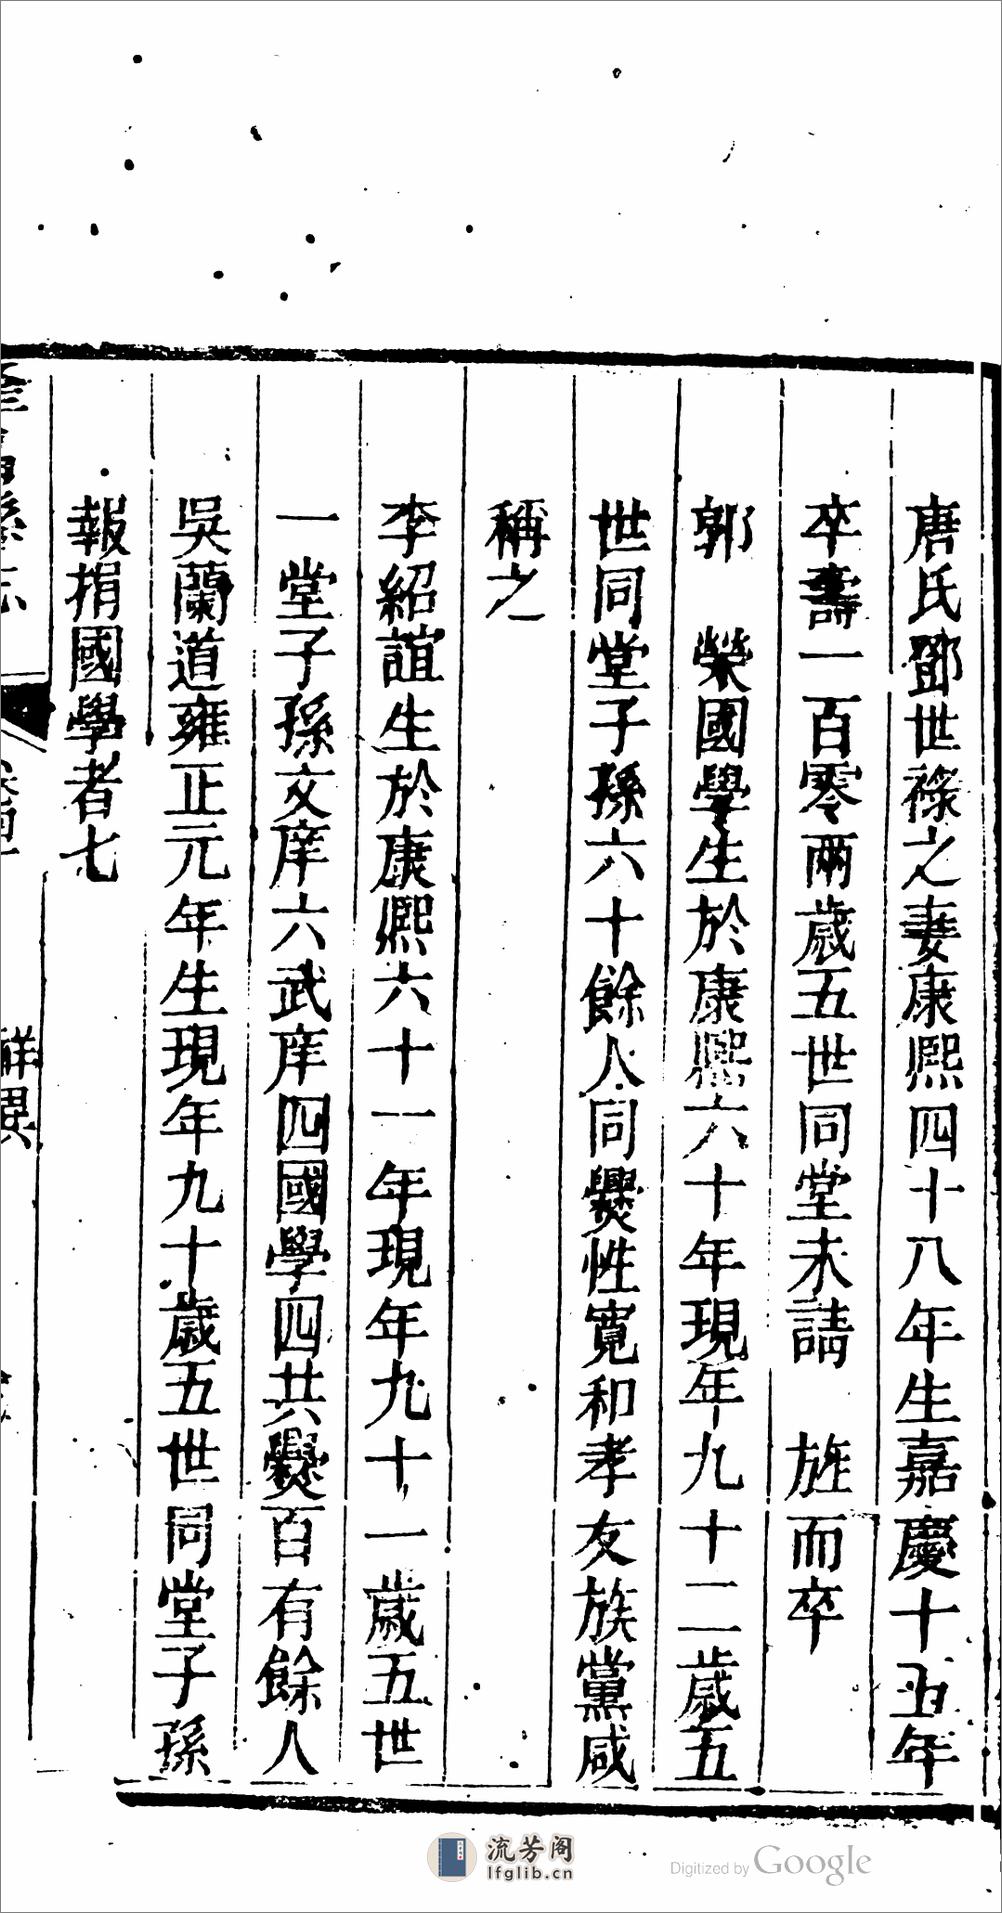 唐氏鄧世祿之妻康熙四十八年生嘉慶十五年
卒壽一百零兩歲五世同堂未請 旌而卒
郭 榮國學生於康熙六十年現年九十二歲五
世同堂子孫六十餘人同爨性寬和孝友族黨咸
稱之
李紹誼生於康熙六十一年現年九十一歲五世
一堂子孫文庠六武庠四國學四共爨百有餘人
吳蘭道雍正元年生現年九十歲五世同堂子孫
報捐國學者七
祥異
流芳阁
lfglib.cn
Digitized by Google